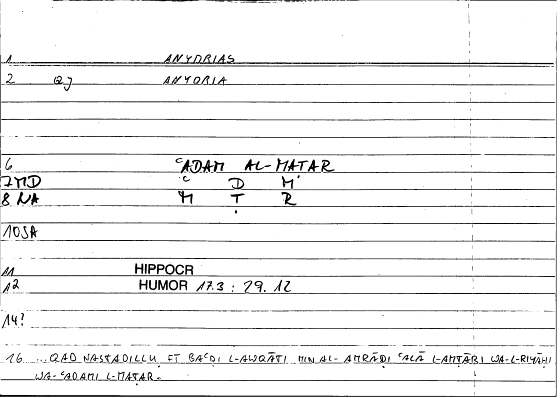 1 ANYDRIAS
2 QJ ANYDRIA
6 ʿADAM AL-MAṬAR
7 MD ʿ D M
8 NA M Ṭ R
10 SA
11 HIPPOCR
12 HUMOR 17.3 : 29.12
14?
16 ...QAD NASTADILLU FĪ BAʿḌI L-AWQĀTI MIN AL-AMRĀḌI ʿALĀ L-AMṬĀRI WA-L-RIYĀḤI
WA-ʿADAMI L-MAṬAR.